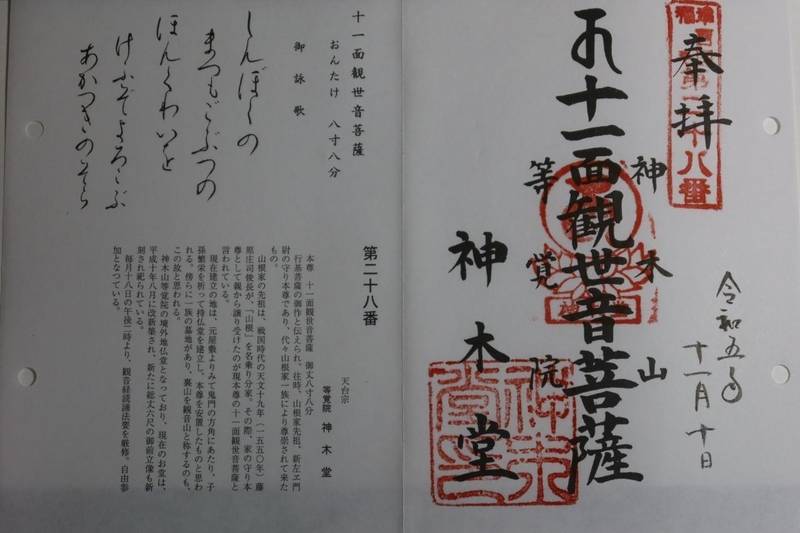 奉拝
第二十八番
十一面観世音菩薩
神木山
等覚院
神木堂
令和五年
十一月十日
神木堂印
十一面観世音菩薩
おんたけ 八寸八分
御詠歌
しんぼくの
まつもごぶつの
ほんぐわいを
けふぞよろこぶ
あかつきのそら
第二十八番
天台宗
等覚院 神木堂
本尊 十一面観世音菩薩 御丈八寸八分
行基菩薩の御作と伝えられ、往時、山根家先祖、新左エ門
尉の守り本尊であり、代々山根家一族により尊崇されて来た
もの。
山根家の先祖は、戦国時代の天文十九年（一五五〇年）藤
原庄司俊長が、「山根」を名乗り分家。その際、家の守り本
尊として親から譲り受けたのが現本尊の十一面観世音菩薩と
言われている。
現在建立の地は、元屋敷よりみて鬼門の方角にあたり、子
孫繁栄を祈って持仏堂を建立し、本尊を安置したものと思わ
れる。傍らに一族の墓地があり、裏山を観音山と称するのも、
この故と思われる。
神木山等覚院の境外地仏堂となっており、現在のお堂は、
平成十年八月に改新築され、新たに総丈六尺の御前立像も新
刻され祀られている。
毎月十八日の午後二時より、観音経読誦法要を厳修。自由参
加となっている。